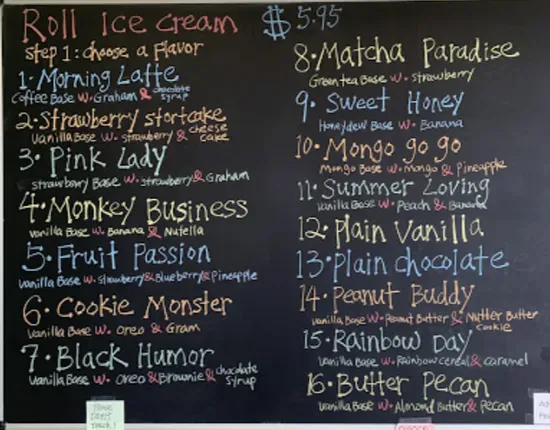 Roll Ice cream $5.95
Step 1: choose a Flavor
1. Morning Latte
Coffee Base w. Graham & chocolate syrup
2. Strawberry stortcake
Vanilla Base w. strawberry & cheese cake
3. Pink Lady
strawberry Base w. strawberry & Graham
4. Monkey Business
Vanilla Base w. Banana & Nutella
5. Fruit Passion
Vanilla Base w. Strawberry & Blueberry & Pineapple
6. Cookie Monster
Vanilla Base w. Oreo & Gram
7. Black Humor
Vanilla Base w. Oreo & Brownie & chocolate syrup
8. Matcha Paradise
Green tea Base w. Strawberry
9. Sweet Honey
Honeydew Base w. Banana
10. Mongo go go
Mongo Base w. Mongo & Pineapple
11. Summer Loving
Vanilla Base w. Peach & Banana
12. Plain Vanilla
13. Plain chocolate
14. Peanut Buddy
Vanilla Base w. Peanut Butter & Nutter Butter cookie
15. Rainbow Day
Vanilla Base w. Rainbow cereal & caramel
16. Butter Pecan
Vanilla Base w. Almond Butter & Pecan